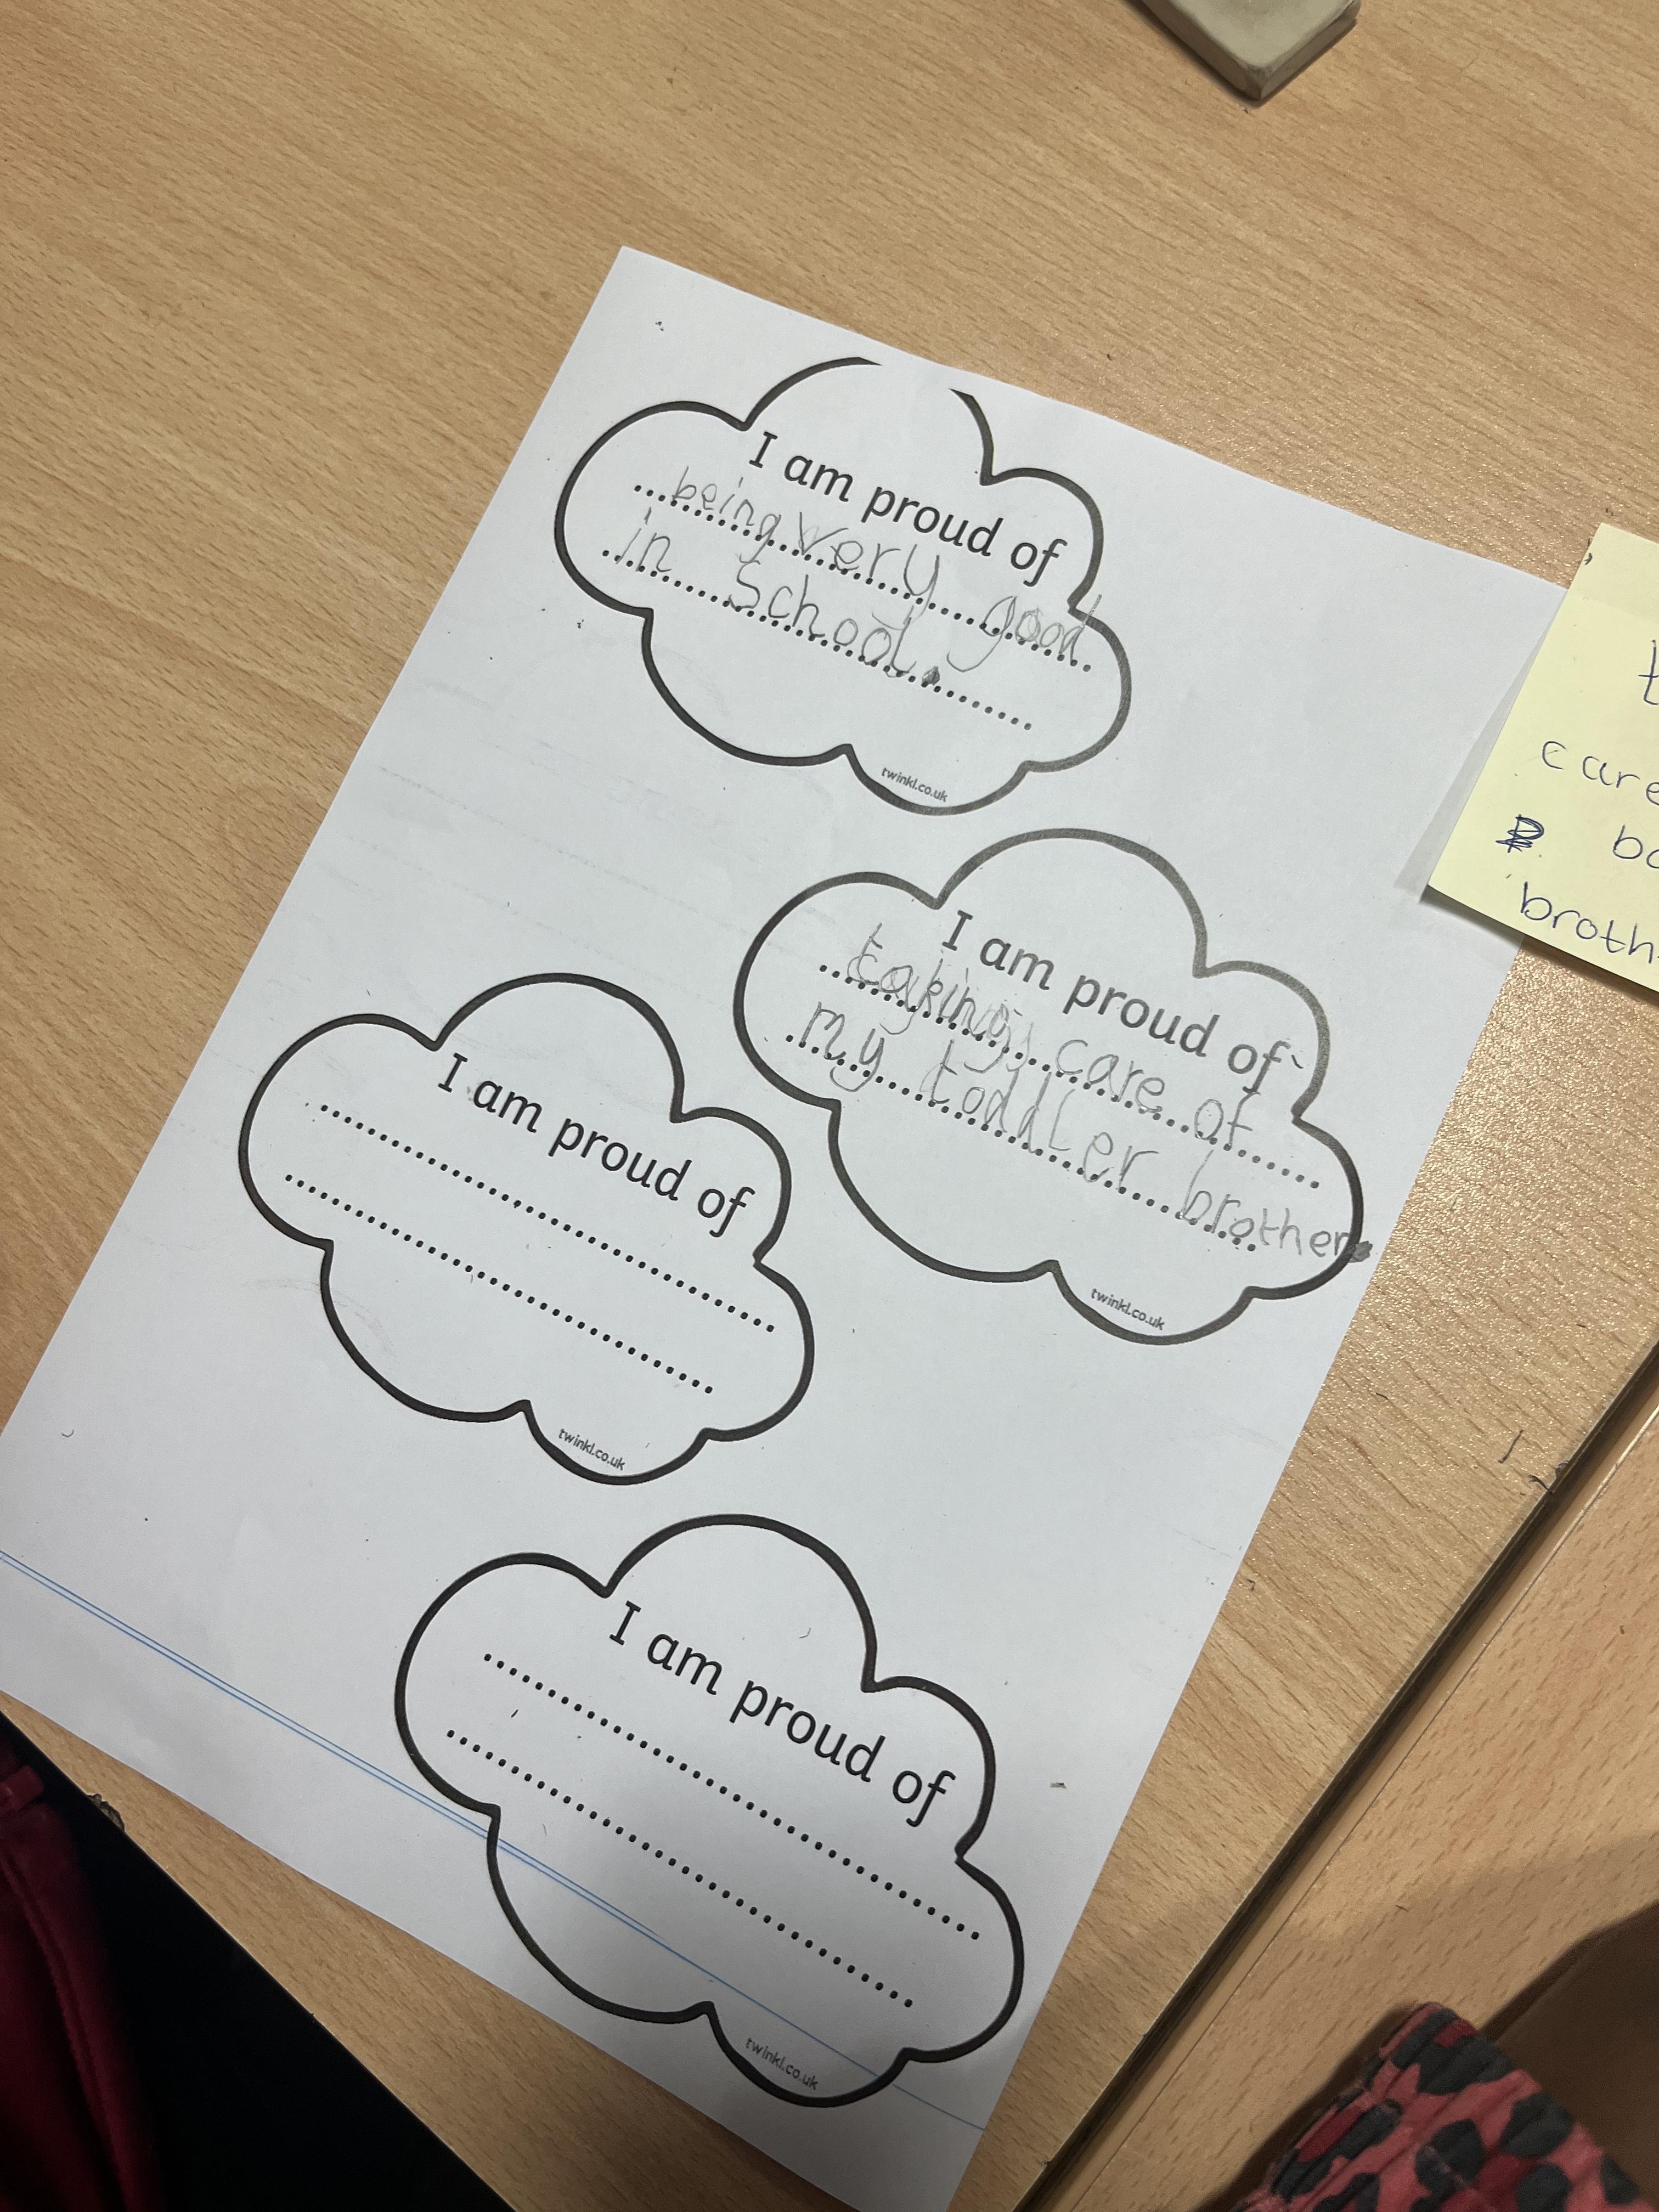 I am proud of
being very good
in school.
twinkl.co.uk
I am proud of
taking care of
my toddler brother.
twinkl.co.uk
I am proud of
twinkl.co.uk
I am proud of
twinkl.co.uk
care